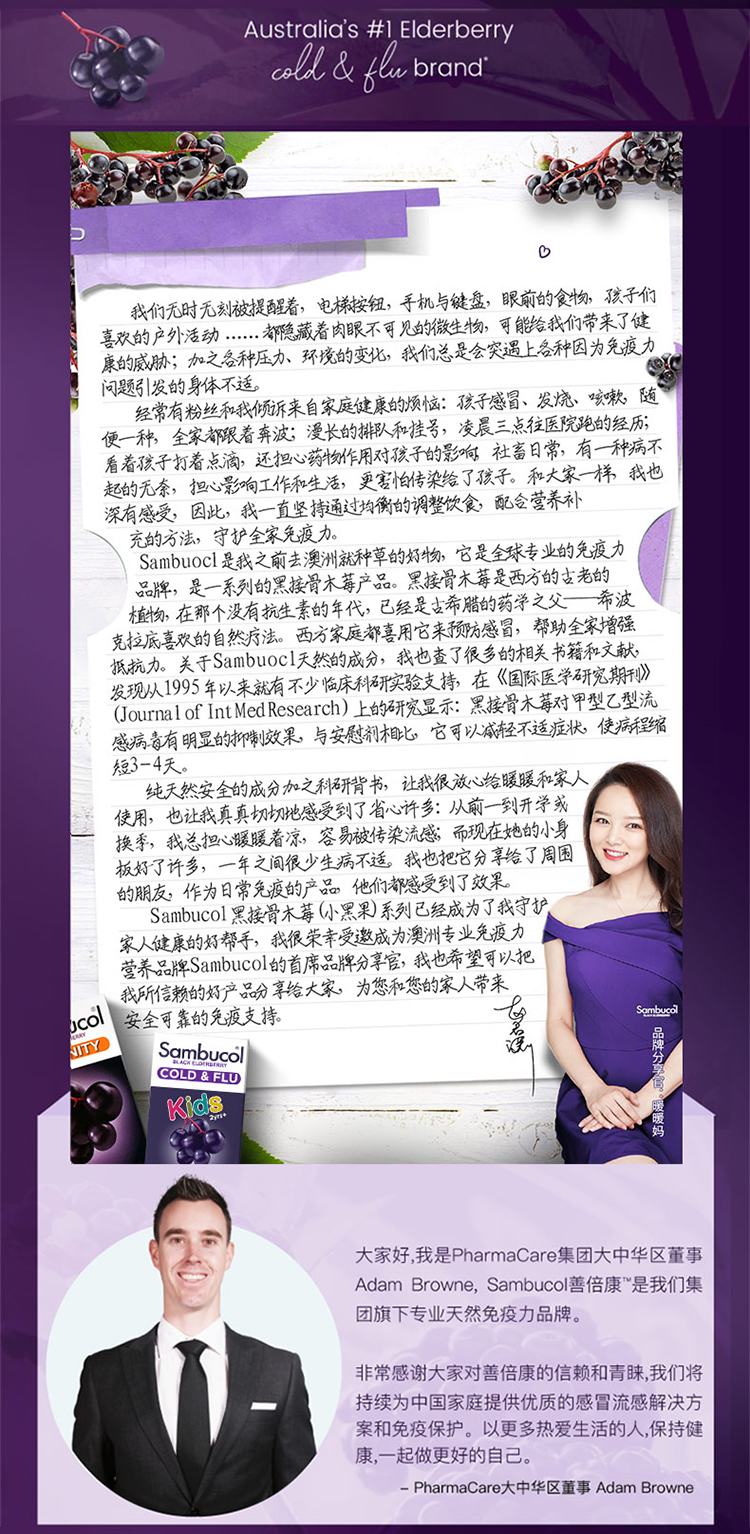 Australia's #1 Elderberry
cold & flu brand*
我们无时无刻被提醒着，电梯按钮，手机与键盘，眼前的食物，孩子们
喜欢的户外活动 …… 都隐藏着肉眼不可见的微生物，可能给我们带来了健
康的威胁；加之各种压力、环境的变化，我们总是会突遇上各种因为免疫力
问题引发的身体不适。
经常有粉丝和我倾诉来自家庭健康的烦恼：孩子感冒、发烧、咳嗽，随
便一种，全家都跟着奔波；漫长的排队和挂号，凌晨三点往医院跑的经历；
看着孩子打着点滴，还担心药物作用对孩子的影响 社畜日常，有一种病不
起的无奈，担心影响工作和生活，更害怕传染给了孩子。和大家一样，我也
深有感受，因此，我一直坚持通过均衡的调整饮食，配合营养补
充的方法，守护全家免疫力。
Sambuocl是我之前去澳洲就种草的好物，它是全球专业的免疫力
品牌，是一系列的黑接骨木莓产品。黑接骨木莓是西方的古老的
植物，在那个没有抗生素的年代，已经是古希腊的药学之父——希波
克拉底喜欢的自然疗法。西方家庭都喜用它来预防感冒，帮助全家增强
抵抗力。关于Sambuocl天然的成分，我也查了很多的相关书籍和文献，
发现从1995年以来就有不少临床科研实验支持，在《国际医学研究期刊》
(Journal of Int Med Research) 上的研究显示：黑接骨木莓对甲型乙型流
感病毒有明显的抑制效果，与安慰剂相比，它可以减轻不适症状，使病程缩
短3-4天。
纯天然安全的成分加之科研背书，让我很放心给暖暖和家人
使用，也让我真真切切地感受到了省心许多：从前一到开学或
换季，我总担心暖暖着凉，容易被传染流感；而现在她的小身
板好了许多，一年之间很少生病不适。我也把它分享给了周围
的朋友，作为日常免疫的产品 他们都感受到了效果。
Sambucol黑接骨木莓(小黑果)系列已经成为了我守护
家人健康的好帮手，我很荣幸受邀成为澳洲专业免疫力
营养品牌Sambucol的首席品牌分享官，我也希望可以把
我所信赖的好产品分享给大家，为您和您的家人带来
安全可靠的免疫支持。
Sambucol
BLACK ELDERBERRY
品牌分享官：暖暖妈
ucol
BERRY
NITY
Sambucol
BLACK ELDERBERRY
COLD & FLU
Kids
2yrs+
大家好,我是PharmaCare集团大中华区董事
Adam Browne, Sambucol善倍康™是我们集
团旗下专业天然免疫力品牌。
非常感谢大家对善倍康的信赖和青睐,我们将
持续为中国家庭提供优质的感冒流感解决方
案和免疫保护。以更多热爱生活的人,保持健
康,一起做更好的自己。
– PharmaCare大中华区董事 Adam Browne